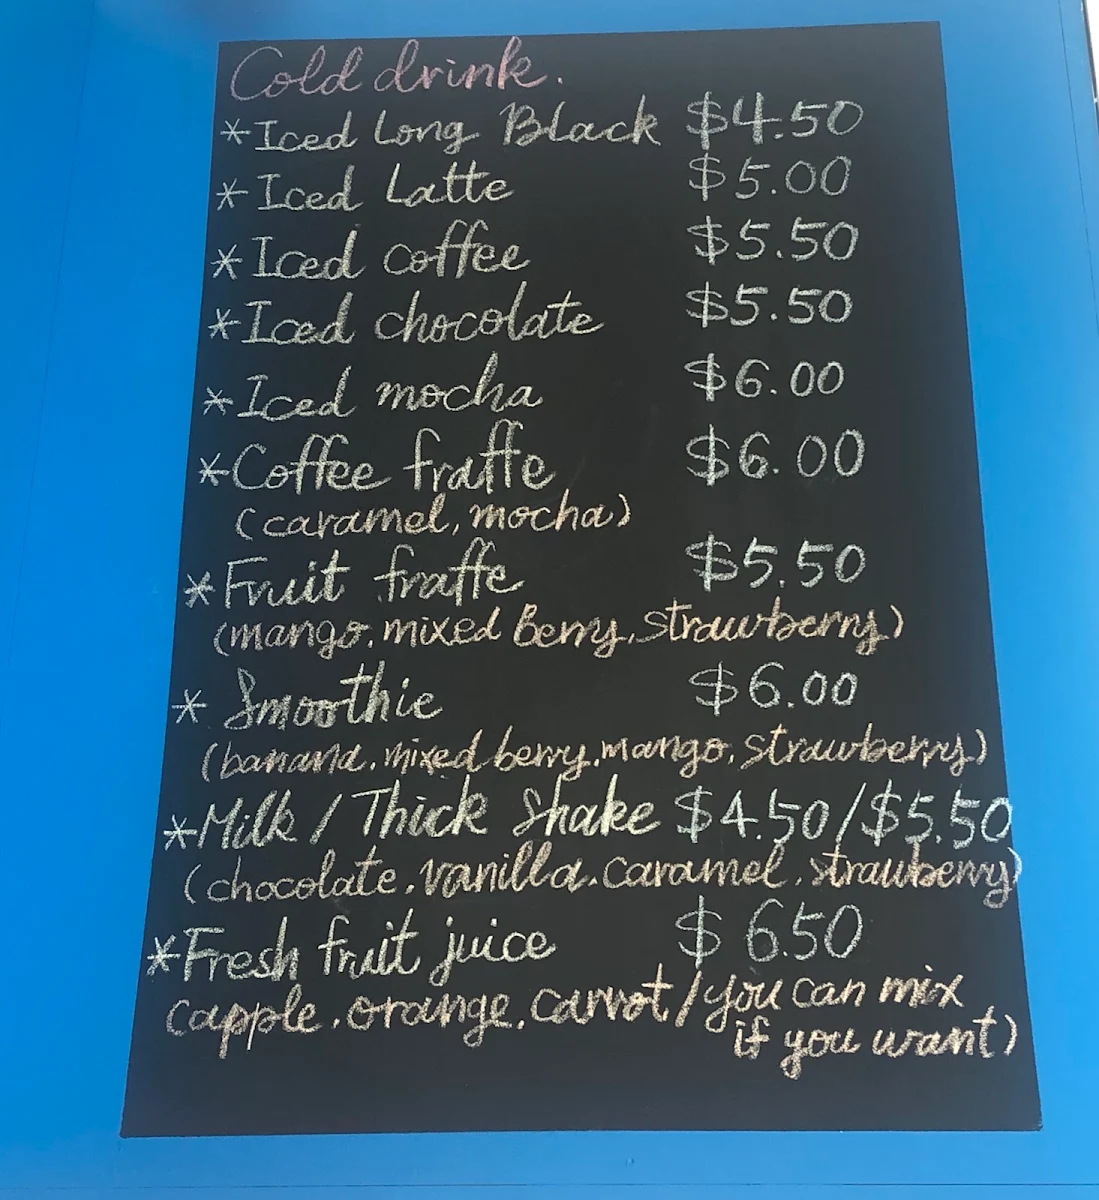 Cold drink.
*Iced Long Black $4.50
*Iced Latte $5.00
*Iced coffee $5.50
*Iced chocolate $5.50
*Iced mocha $6.00
*Coffee fraffe $6.00
(caramel, mocha)
*Fruit fraffe $5.50
(mango, mixed Berry, strawberry)
* Smoothie $6.00
(banana, mixed berry, mango, strawberry)
*Milk / Thick Shake $4.50/$5.50
(chocolate, vanilla, caramel, strawberry)
*Fresh fruit juice $6.50
(apple, orange, carrot / you can mix
if you want)